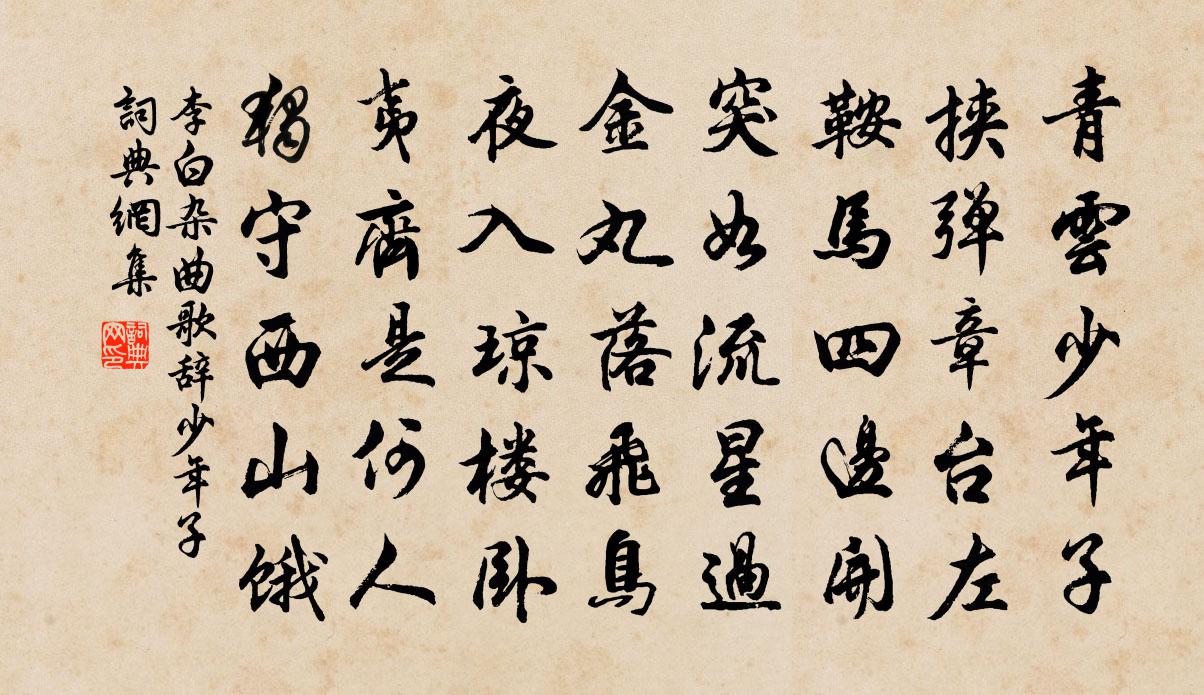 青雲少年子
挾弹章台左
鞍馬四邊開
突如流星過
金丸落飛鳥
夜入琼楼卧
夷齊是何人
獨守西山饿
李白杂曲歌辞少年子
詞典網集
詞典网印